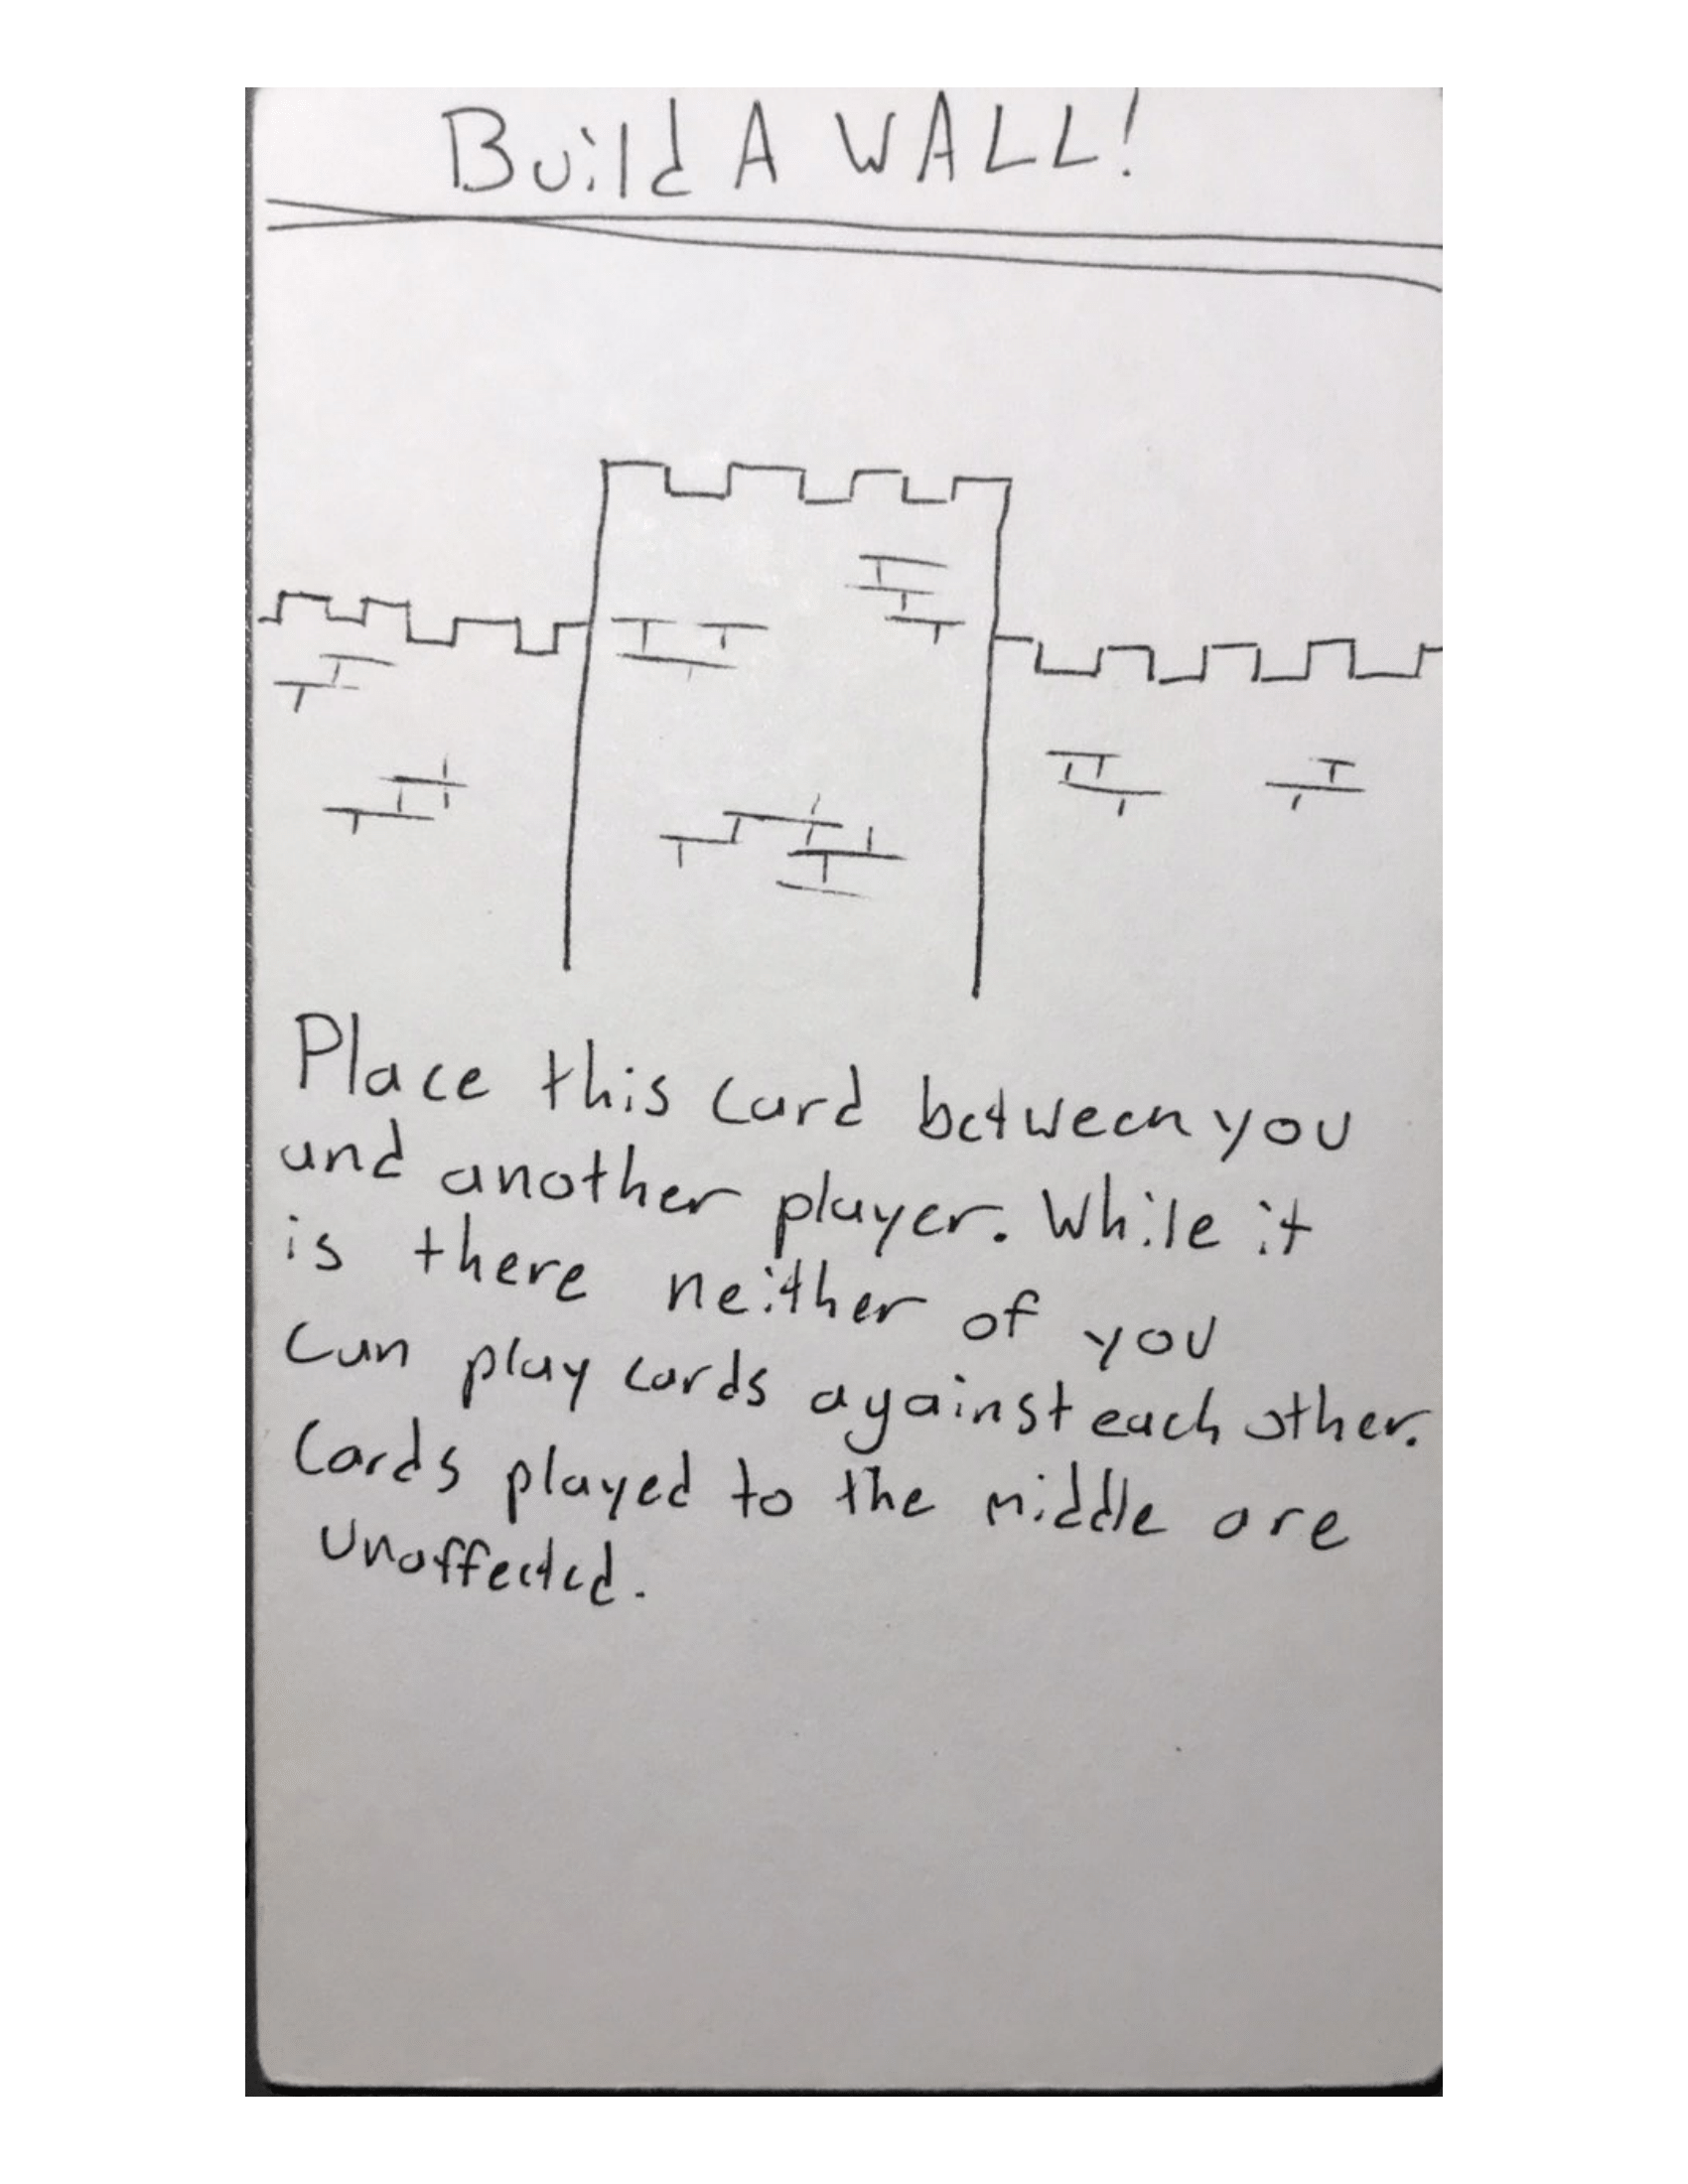 Build A WALL!
Place this card between you
and another player. While it
is there neither of you
Can play cards against each other.
Cards played to the middle are
Unaffected.